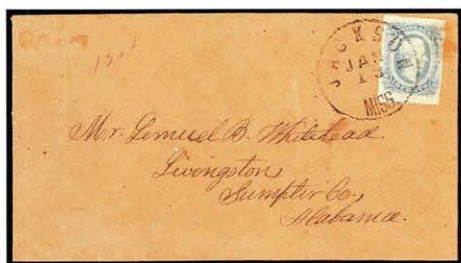 JACKSON
JAN
13
MISS.
Mr. Lemuel B. Whitehead
Livingston,
Sumpter Co.,
Alabama.